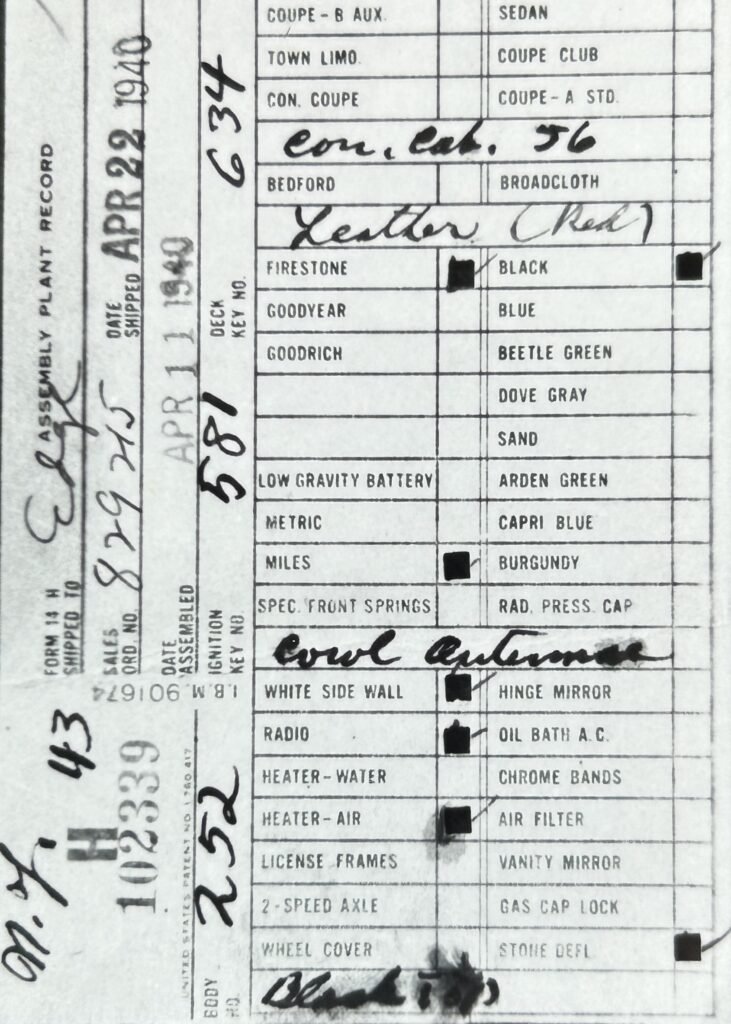 FORM 14 H ASSEMBLY PLANT RECORD
SHIPPED TO Edge
SALES ORD. NO. 829215 DATE SHIPPED APR 22 1940
DATE ASSEMBLED APR 11 1940
IGNITION KEY NO 581 DECK KEY NO. 634
43
H
102339
I.B.M. 901674
UNITED STATES PATENT NO. 1,780,417
BODY NO. 252
COUPE-B AUX. SEDAN
TOWN LIMO. COUPE CLUB
CON. COUPE COUPE-A STD.
Con. Cab. 56
BEDFORD BROADCLOTH
Leather (Red)
FIRESTONE BLACK
GOODYEAR BLUE
GOODRICH BEETLE GREEN
DOVE GRAY
SAND
LOW GRAVITY BATTERY ARDEN GREEN
METRIC CAPRI BLUE
MILES BURGUNDY
SPEC. FRONT SPRINGS RAD. PRESS. CAP
Cowl antennae
WHITE SIDE WALL HINGE MIRROR
RADIO OIL BATH A.C.
HEATER-WATER CHROME BANDS
HEATER-AIR AIR FILTER
LICENSE FRAMES VANITY MIRROR
2-SPEED AXLE GAS CAP LOCK
WHEEL COVER STONE DEFL.
Black Top